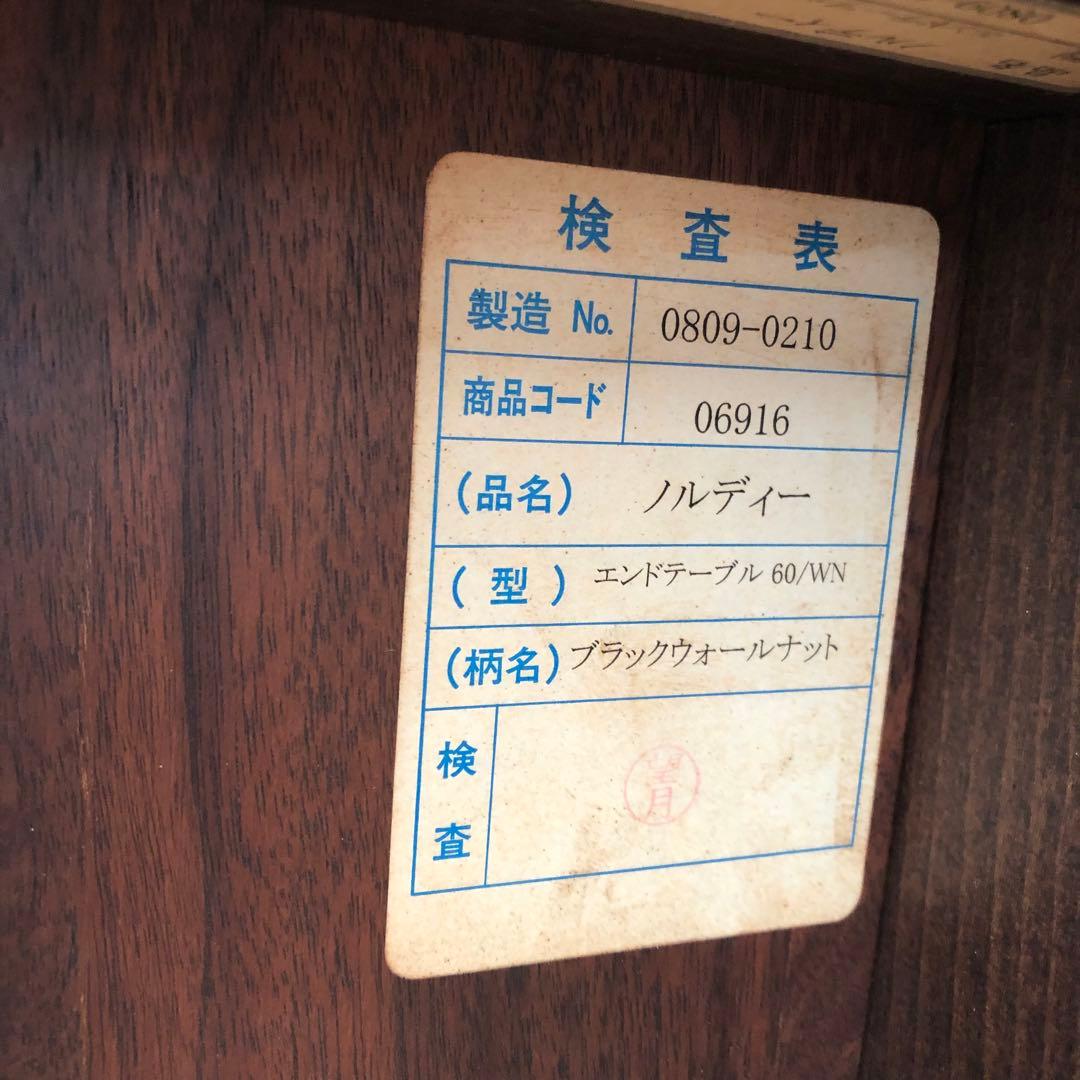 検 査 表
製造 No. 0809-0210
商品コード 06916
(品名) ノルディー
(型) エンドテーブル 60/WN
(柄名) ブラックウォールナット
検査
望月